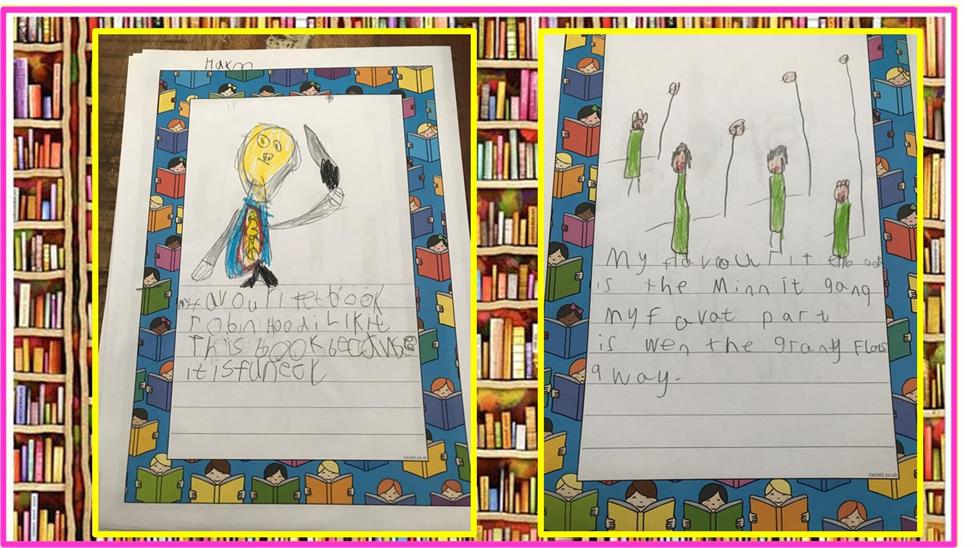 my favourite book
robin Hood i LIkit
This book because
it is funeek
twinkl.co.uk
My favourit
is the Minnit gang
my Favat part
is wen the grany Floas
a way.
twinkl.co.uk